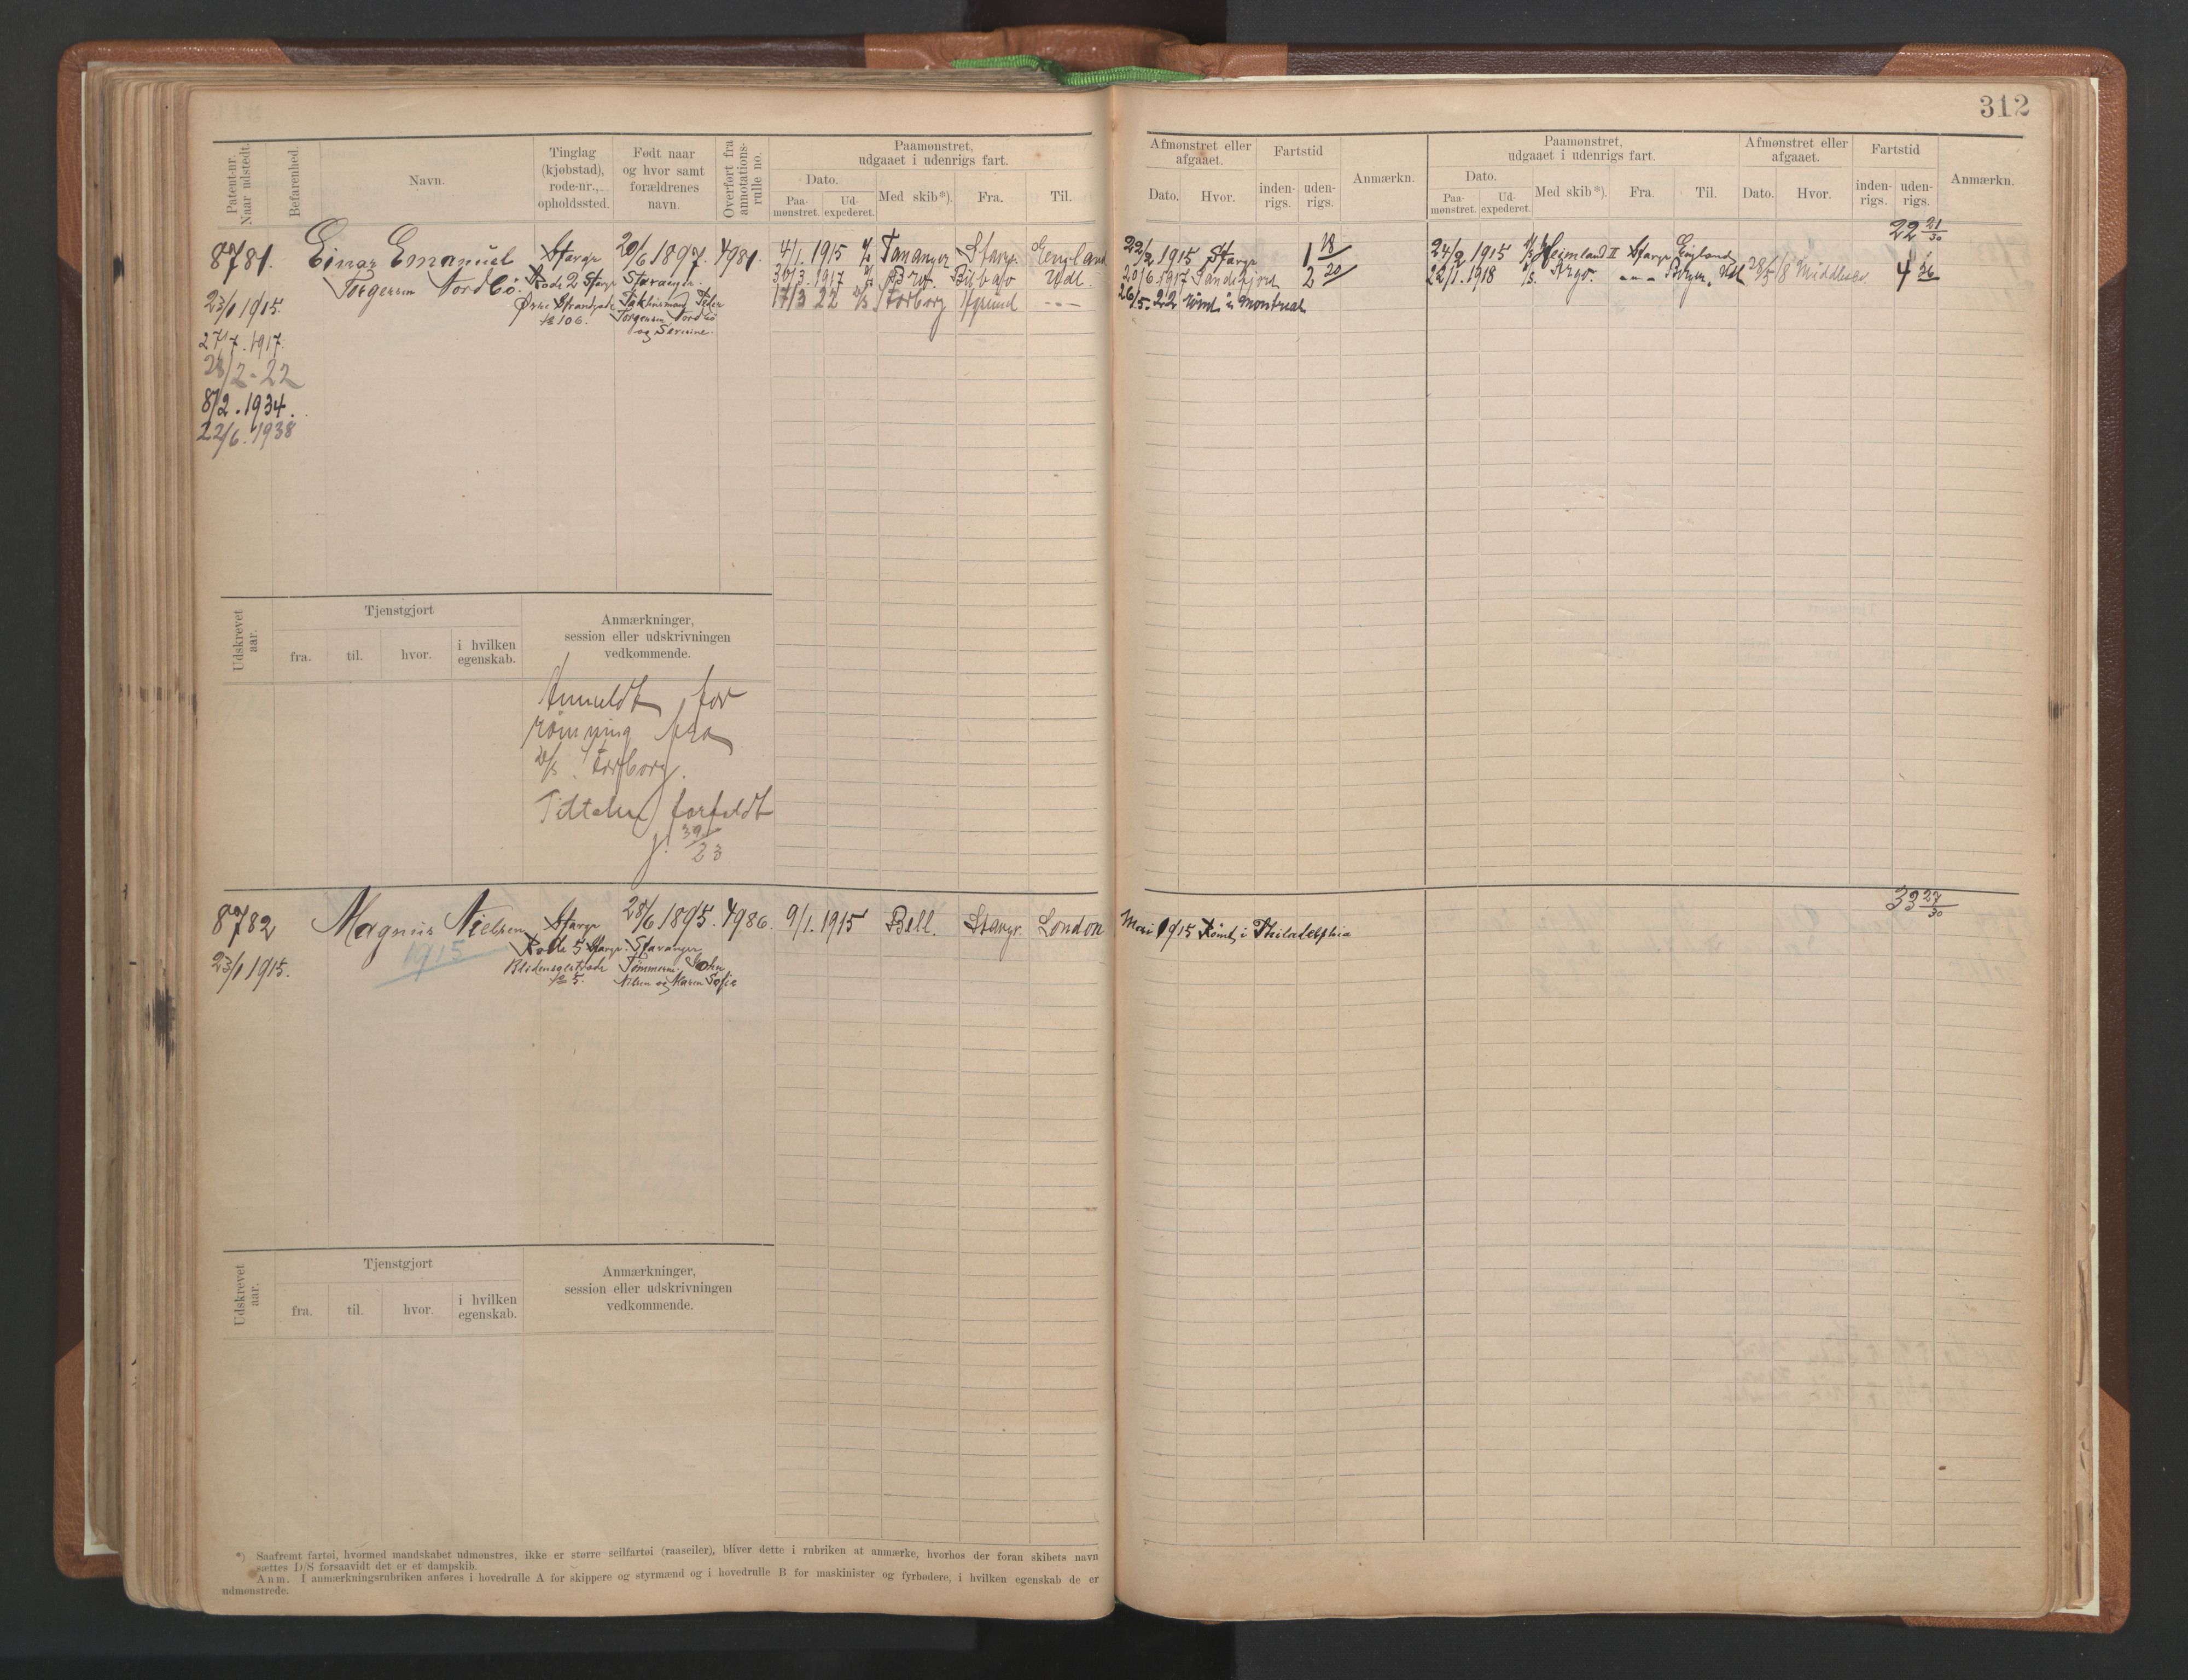 312
Patent-nr. Naar udstedt.
Befarenhed.
Navn.
Tinglag (kjøbstad), rode-nr., opholdssted.
Født naar og hvor samt forældrenes navn.
Overført fra annotations-rulle no.
Paamønstret, udgaaet i udenrigs fart.
Dato.
Paa-mønstret.
Ud-expederet.
Med skib*).
Fra.
Til.
Afmønstret eller afgaaet.
Dato.
Hvor.
Fartstid
inden-rigs.
uden-rigs.
Anmærkn.
Paamønstret, udgaaet i udenrigs fart.
Dato.
Paa-mønstret.
Ud-expederet.
Med skib*).
Fra.
Til.
Afmønstret eller afgaaet.
Dato.
Hvor.
Fartstid
inden-rigs.
uden-rigs.
Anmærkn.
22 21/30
8781. Einar Emanuel Stavgr 20/6 1897. 4981. 4/1. 1915 Tananger Stavgr. England 22/2 1915 Stavgr 1 18 24/2 1915 Heimland II Stavgr England
Torgersen Nordbö. Rode 2 Stavgr Stavanger. 30/3. 1917 Bilbao Udl. 20/6 1917 Sandefjord 2 20 22/1. 1918 28/5 18 Middlesbr 4 26
23/1 1915. Øvre Strandgade Peder 17/3 22 Torborg 26/5. 22 Römt i Montreal
№ 106. Torgersen Nordbö
og Serine.
27/7. 1917.
28/2 - 22
8/2. 1934.
22/6. 1938
Udskrevet aar.
Tjenstgjort
fra.
til.
hvor.
i hvilken egenskab.
Anmærkninger, session eller udskrivningen vedkommende.
Anmeldt for
römning fra
Torborg.
Tiltalen forfaldt
j. 39/23
33 27/30
8782 Magnus Nielsen Stavgr 28/6 1895. 4986. 9/1. 1915 Bell. Stavgr. London Mai 1915 Römt i Philadelphia
1915 Rode 5 Stavgr. Stavanger
23/1 1915. Tömmerm. John
№ 5. Nilsen og Maren Sofie
Udskrevet aar.
Tjenstgjort
fra.
til.
hvor.
i hvilken egenskab.
Anmærkninger, session eller udskrivningen vedkommende.
*) Saafremt fartøi, hvormed mandskabet udmønstres, ikke er større seilfartøi (raaseiler), bliver dette i rubriken at anmærke, hvorhos der foran skibets navn
sættes D/S forsaavidt det er et dampskib.
Anm. I anmærkningsrubriken anføres i hovedrulle A for skippere og styrmænd og i hovedrulle B for maskinister og fyrbødere, i hvilken egenskab de er
udmønstrede.